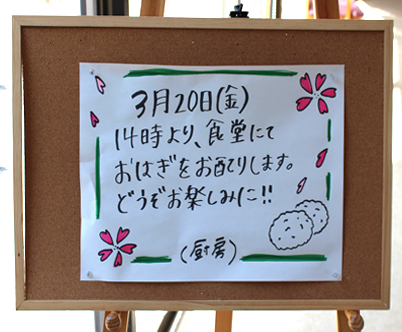 3月20日(金)
14時より、食堂にて
おはぎをお配りします。
どうぞお楽しみに!!
(厨房)